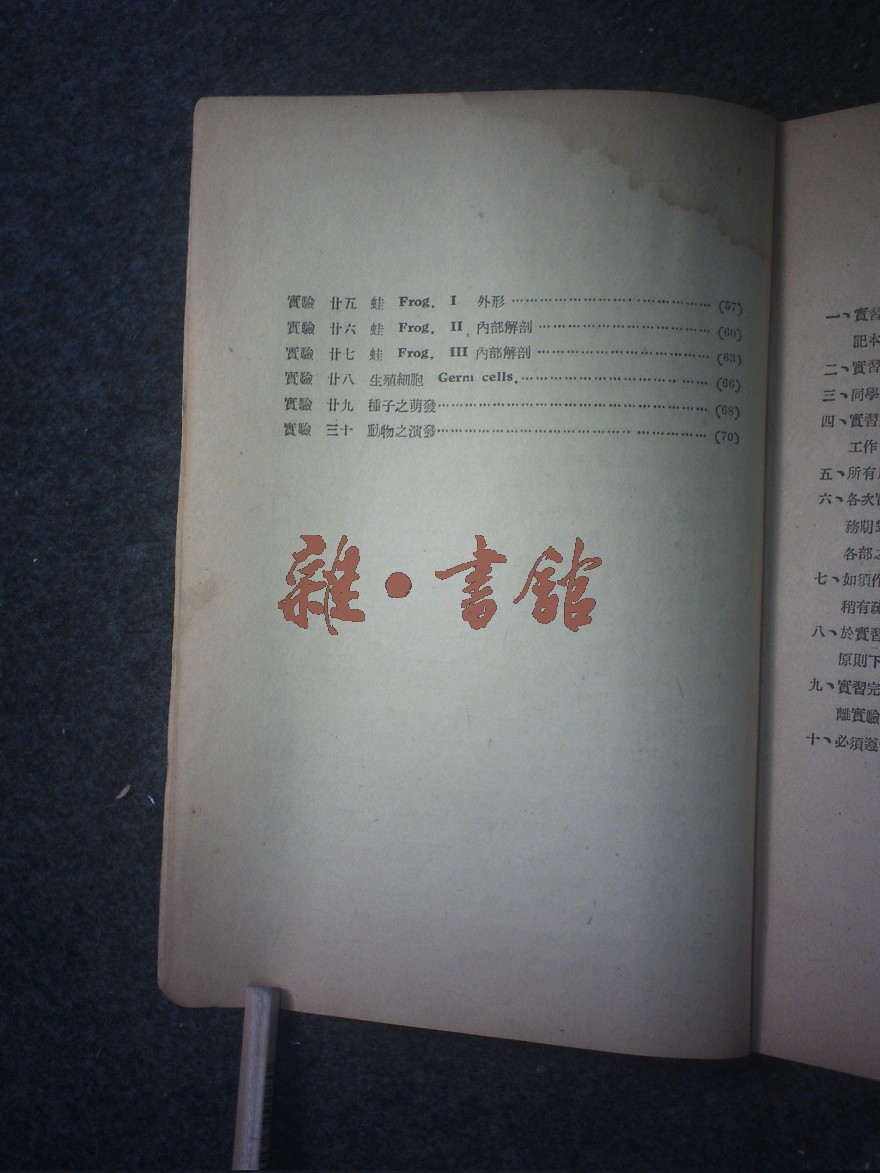 實驗 廿五 蛙 Frog. I 外形 (57)
實驗 廿六 蛙 Frog. II 內部解剖 (60)
實驗 廿七 蛙 Frog. III 內部解剖 (63)
實驗 廿八 生殖細胞 Germ cells. (66)
實驗 廿九 種子之萌發 (68)
實驗 三十 動物之演發 (70)
雜·書館
一、實習
記本
二、實習
三、同學
四、實習
工作
五、所有
六、各次
務期
各部之
七、如須作
稍有
八、於實習
原則下
九、實習完
離實驗
十、必須遵